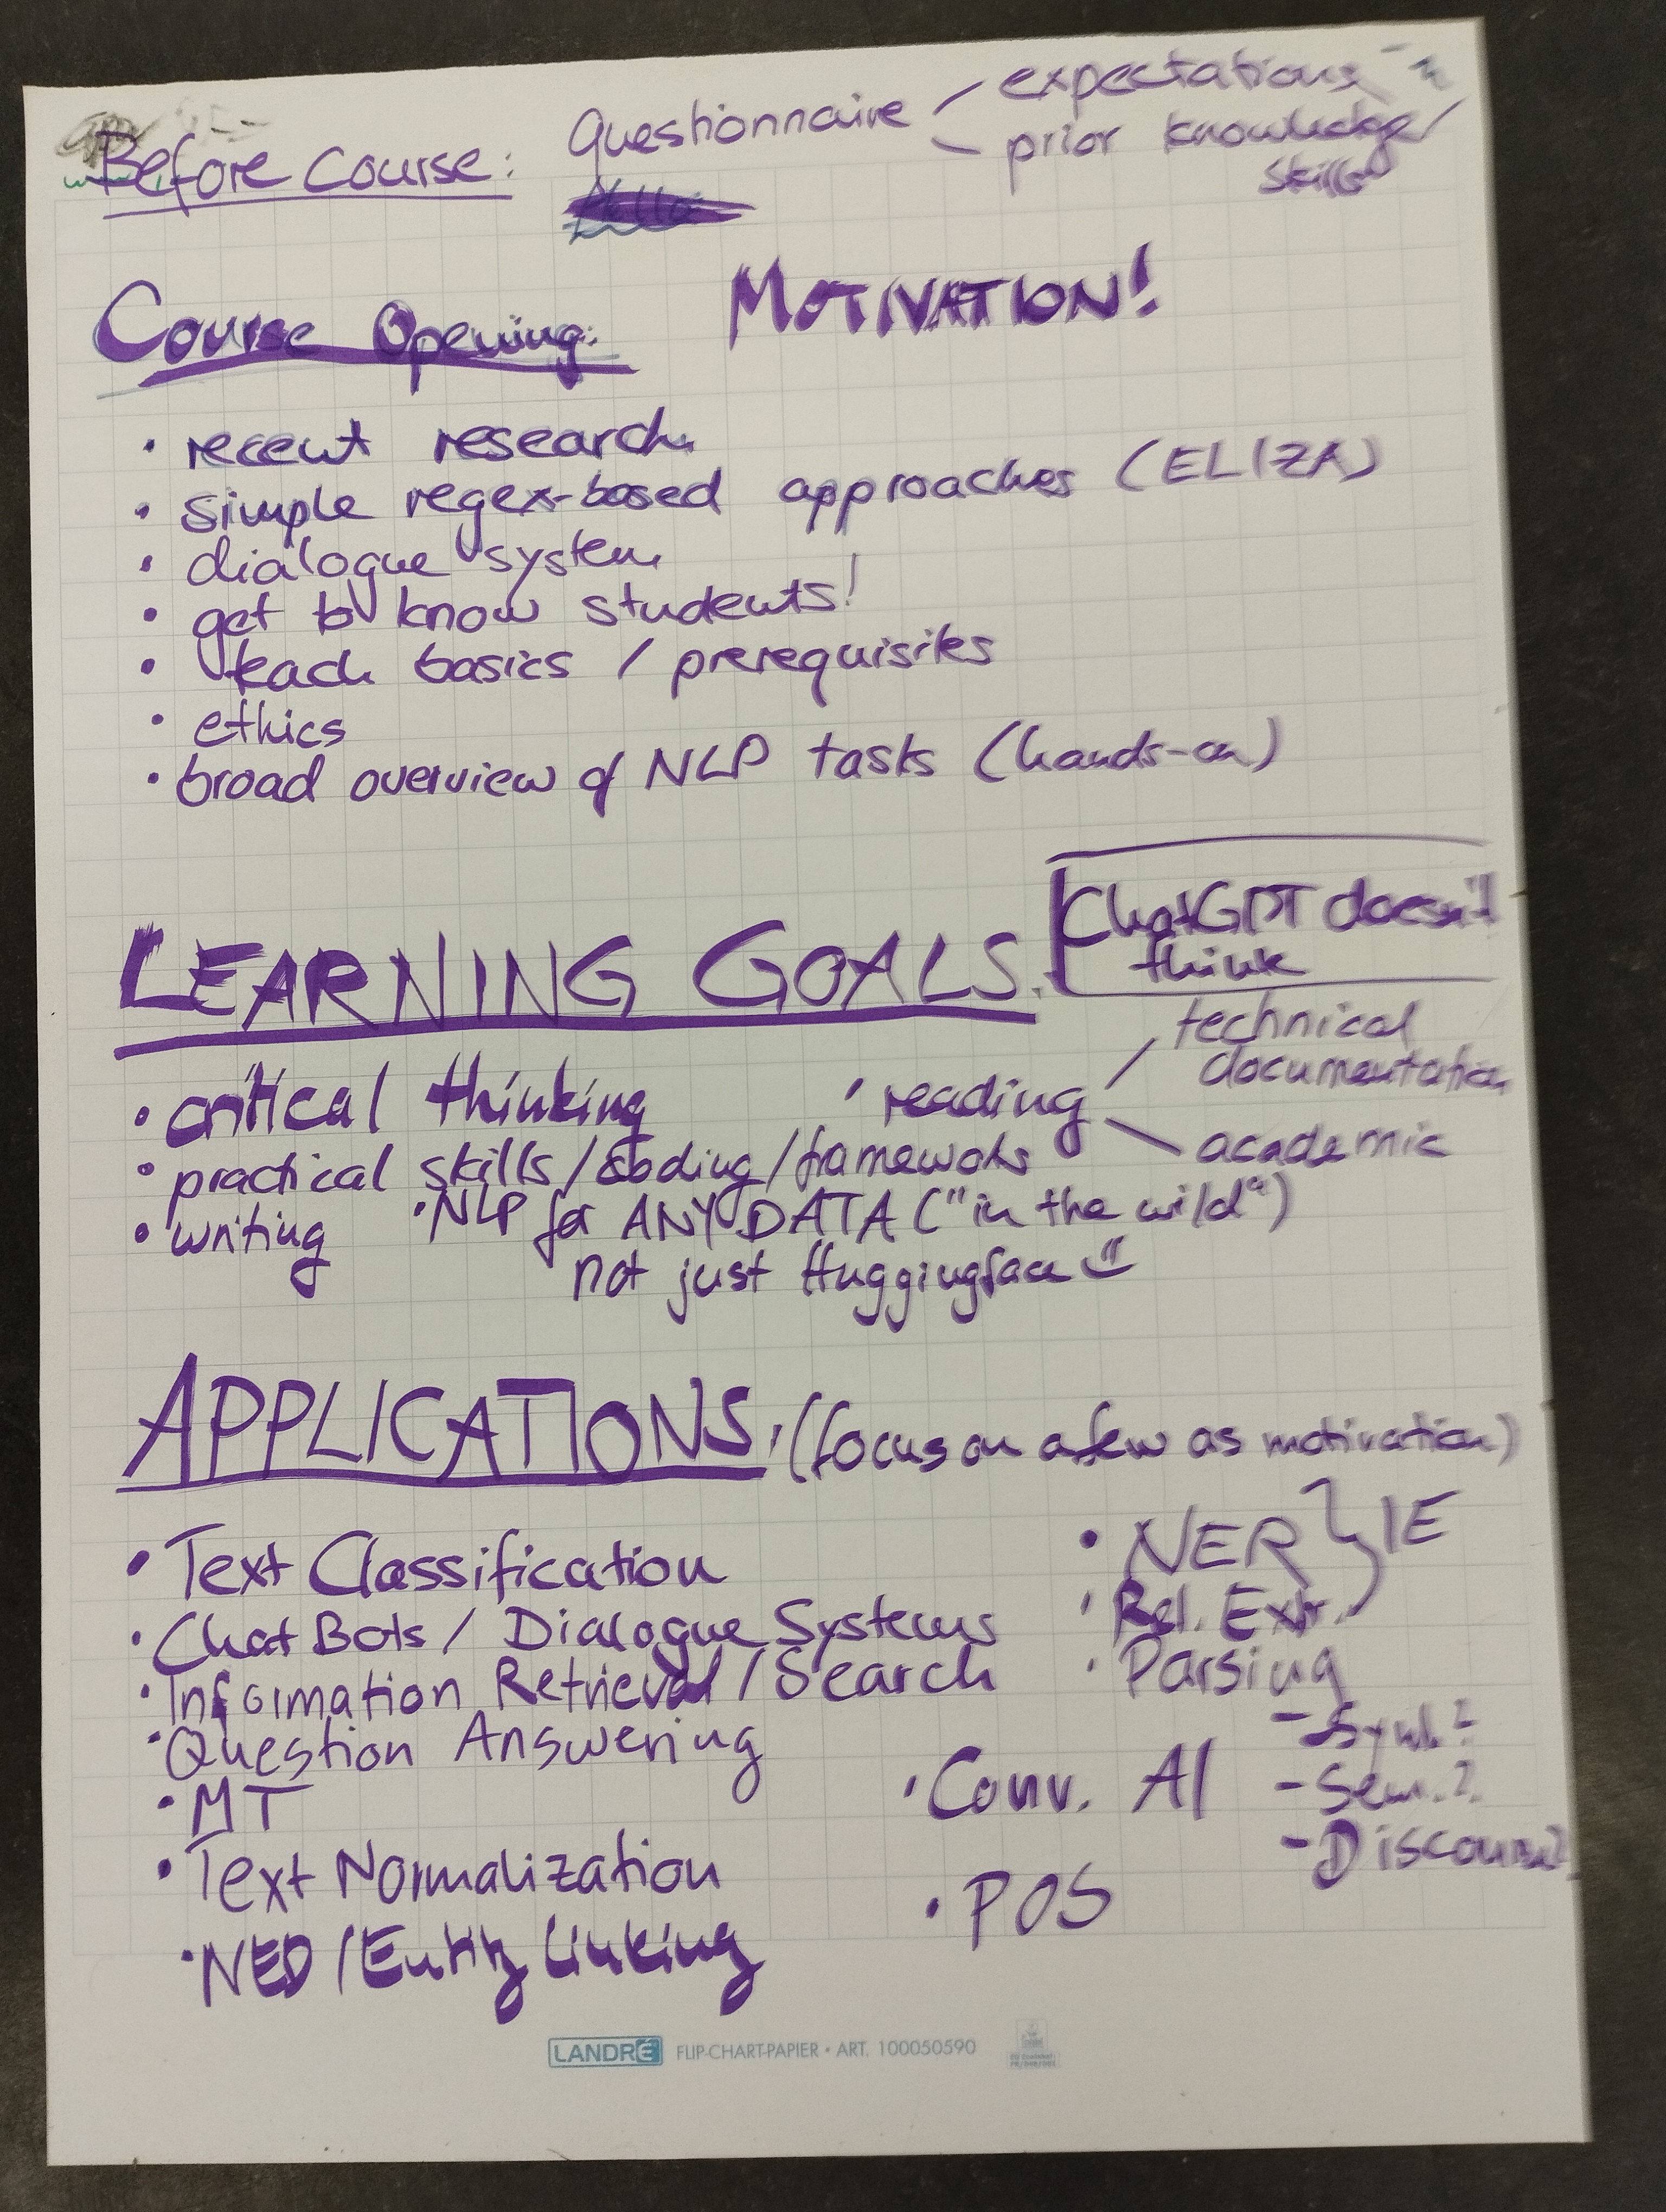 Before Course: Questionnaire
expectations
prior knowledge/
skills
Course Opening: MOTIVATION!
• recent research
• simple regex-based approaches (ELIZA)
• dialogue system
• get to know students!
• teach basics / prerequisites
• ethics
• broad overview of NLP tasks (hands-on)
LEARNING GOALS:
ChatGPT doesn't
think
• critical thinking
• reading
technical
documentation
academic
• practical skills/coding/frameworks
• writing
• NLP for ANY DATA ("in the wild")
not just Huggingface
APPLICATIONS: (focus on a few as motivation)
• Text Classification
• Chat Bots / Dialogue Systems
• Information Retrieval / Search
• Question Answering
• MT
• Text Normalization
• NED / Entity Linking
• NER } IE
• Rel. Extr.
• Parsing
- Synt.?
- Sem.?
- Discourse?
• Conv. AI
• POS
LANDRÉ FLIP-CHART-PAPIER • ART. 100050590